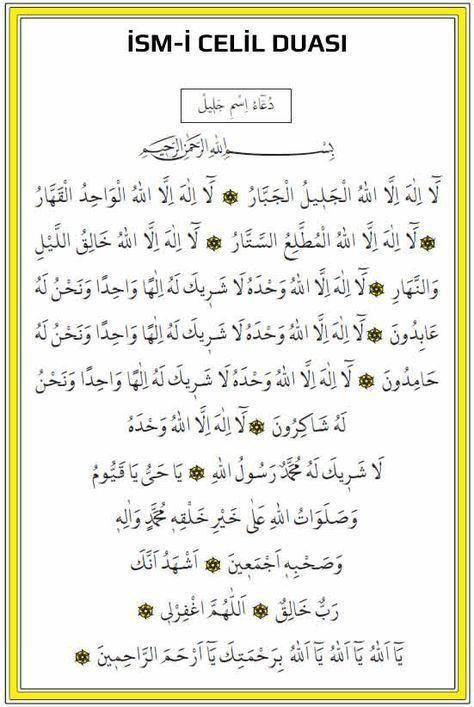 İSM-İ CELİL DUASI
دُعَاءُ اِسْمِ جَلِيلْ
بِسْمِ اللهِ الرَّحْمٰنِ الرَّحِيمِ
لَٓا اِلٰهَ اِلَّا اللهُ الْجَلِيلُ الْجَبَّارُ ۞ لَٓا اِلٰهَ اِلَّا اللهُ الْوَاحِدُ الْقَهَّارُ
۞ لَٓا اِلٰهَ اِلَّا اللهُ الْمُطَّلِعُ السَّتَّارُ ۞ لَٓا اِلٰهَ اِلَّا اللهُ خَالِقُ اللَّيْلِ
وَالنَّهَارِ ۞ لَٓا اِلٰهَ اِلَّا اللهُ وَحْدَهُ لَا شَرِيكَ لَهُ اِلٰهًا وَاحِدًا وَنَحْنُ لَهُ
عَابِدُونَ ۞ لَٓا اِلٰهَ اِلَّا اللهُ وَحْدَهُ لَا شَرِيكَ لَهُ اِلٰهًا وَاحِدًا وَنَحْنُ لَهُ
حَامِدُونَ ۞ لَٓا اِلٰهَ اِلَّا اللهُ وَحْدَهُ لَا شَرِيكَ لَهُ اِلٰهًا وَاحِدًا وَنَحْنُ
لَهُ شَاكِرُونَ ۞ لَٓا اِلٰهَ اِلَّا اللهُ وَحْدَهُ
لَا شَرِيكَ لَهُ مُحَمَّدٌ رَسُولُ اللهِ ۞ يَا حَىُّ يَا قَيُّومُ
وَصَلَوَاتُ اللهِ عَلٰى خَيْرِ خَلْقِهِ مُحَمَّدٍ وَاٰلِهِ
وَصَحْبِهِ اَجْمَعِينَ ۞ اَشْهَدُ اَنَّكَ
رَبٌّ خَالِقٌ ۞ اَللّٰهُمَّ اغْفِرْلِى ۞
يَٓا اَللهُ يَٓا اَللهُ يَٓا اَللهُ بِرَحْمَتِكَ يَٓا اَرْحَمَ الرَّاحِمِينَ ۞